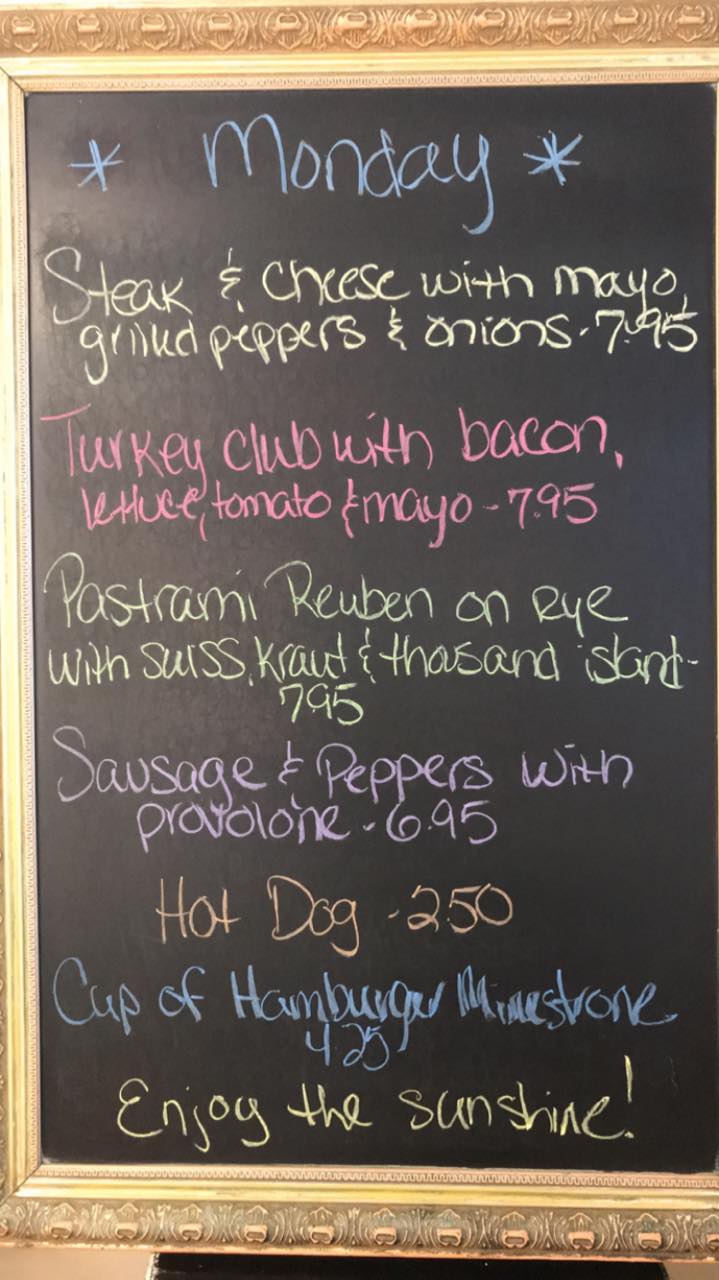 * Monday *
Steak & Cheese with mayo,
grilled peppers & onions - 7.95
Turkey club with bacon,
lettuce, tomato & mayo - 7.95
Pastrami Reuben on rye
with swiss, kraut & thousand island -
7.95
Sausage & Peppers with
provolone - 6.95
Hot Dog - 2.50
Cup of Hamburger Minestrone
4.25
Enjoy the sunshine!